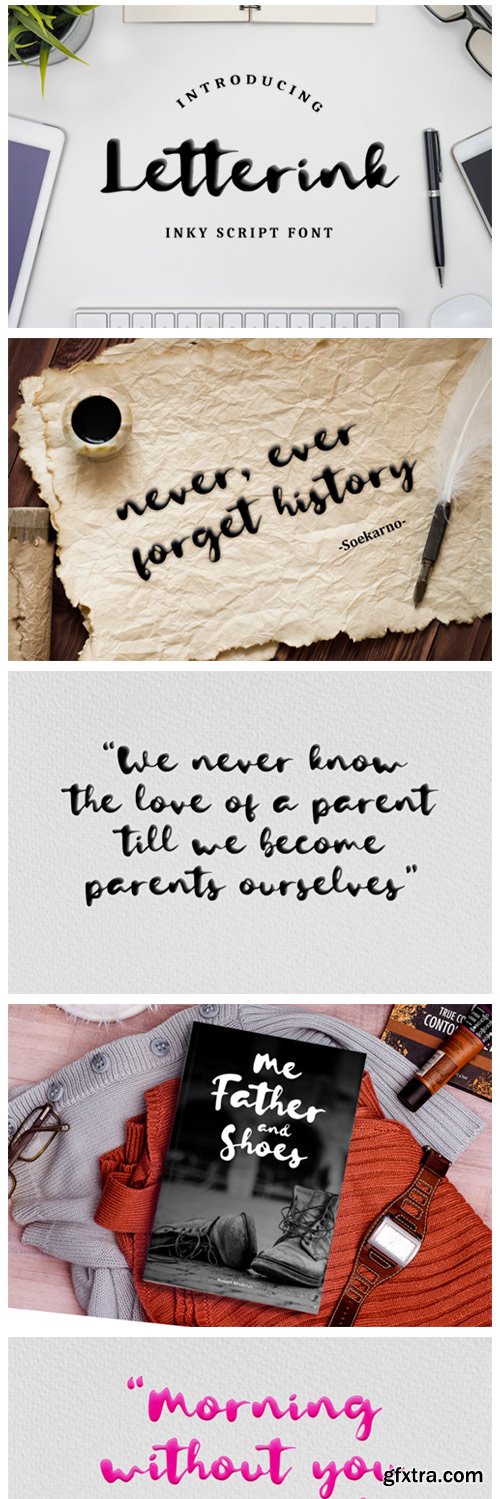 INTRODUCING
Letterink
INKY SCRIPT FONT
never, ever
forget history
-Soekarno-
“We never know
the love of a parent
till we become
parents ourselves”
TRUE CO
CONTO
Me
Father
and
Shoes
“Morning
without you
gfxtra.com